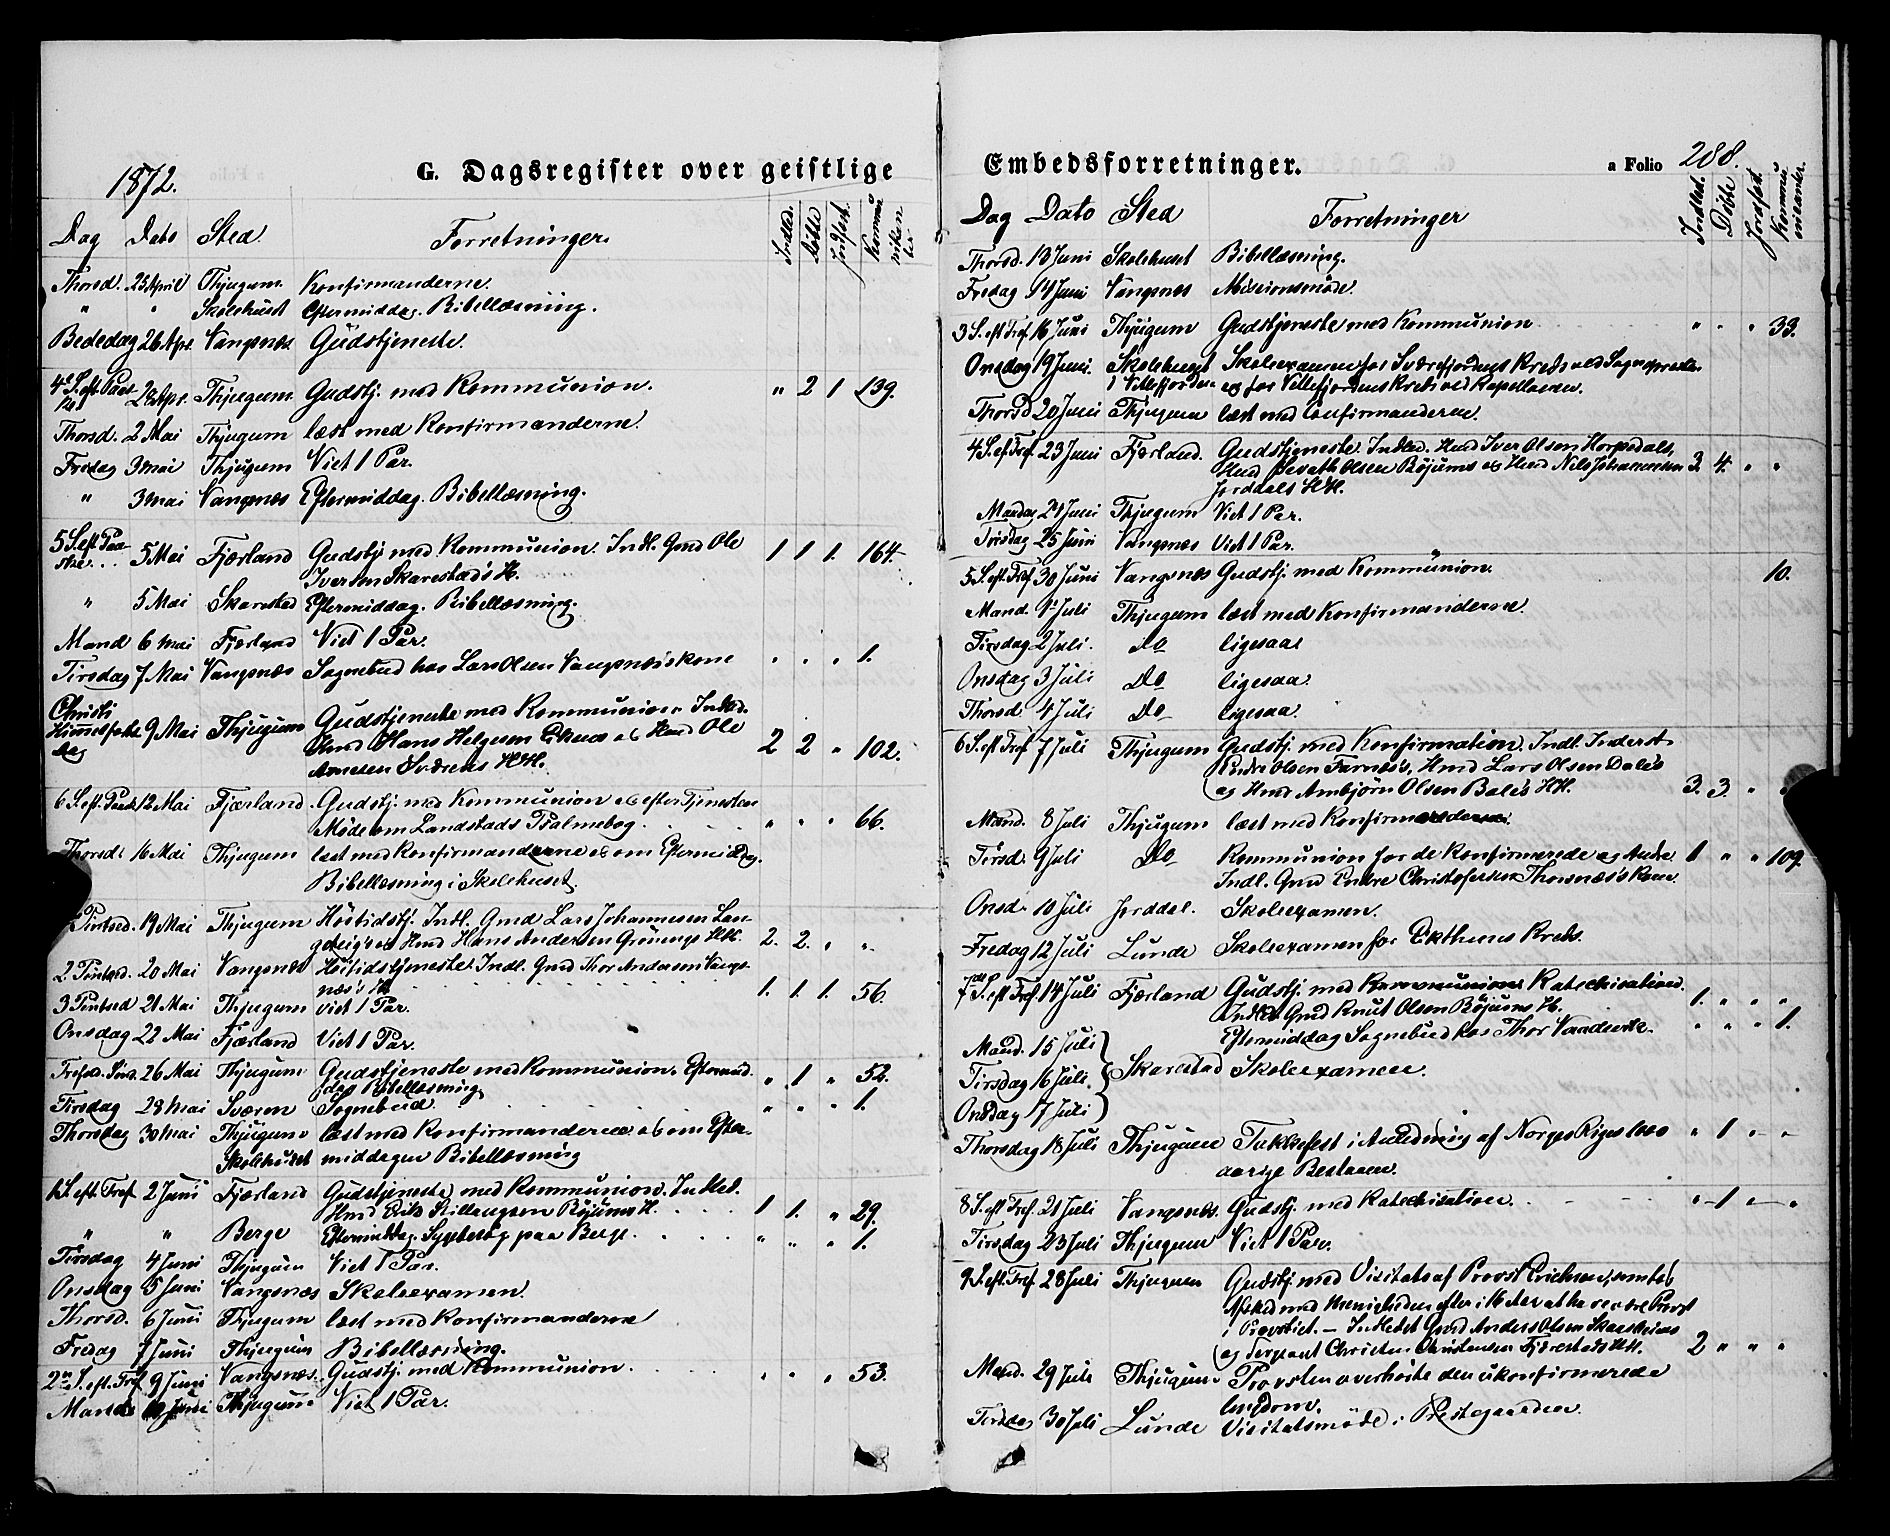 1872.
G. Dagsregister over geistlige
Dag Dato Sted. Forretninger. Indled. Döbte Introd. Kommunikanter
Thorsd. 25 April Thjugum. Konfirmanderne.
" " Skolehuset Eftermiddag. Bibellæsning.
Bededag 26 Apr. Vangsnæs. Gudstjeneste.
4de S. eft. Paaske 28 Apr. Thjugum. Gudstj. med Kommunion. " 2 1 139.
Thorsd. 2 Mai Thjugum læst med Konfirmanderne.
Fredag 3 mai Thjugum Viet 1 Par.
" 3 mai Vangsnæs Eftermiddag. Bibellæsning.
5 S. eft. Paaske... 5 Mai Fjærland Gudstj. med Kommunion. Indl. Gmd Ole 1 1 1. 164.
Iversen Skarestad's H.
" 5 Mai Skarestad Eftermiddag. Bibellæsning.
Mand 6 mai Fjærland Viet 1 Par.
Tirsdag 7 Mai Vangsnæs Sognebud hos Lars Olsen Vangsnæs's kone " " " 1.
Christi
Himmelfarts 9 Mai Thjugum Gudstjeneste med Kommunion Indled.
dag Hmd Hans Helgesen og Hmd Ole 2 2 " 102.
Arnesen Sværens HH.
6 S. eft. Paask 12 Mai Fjærland. Gudstj. med Kommunion og efter Tjenesten
Møde om Landstads Psalmebog. " " " 66.
Thorsd. 16 Mai Thjugum læst med Konfirmanderne og om Eftermiddag.
Bibellæsning i Skolehuset.
Pintsed. 19 Mai Thjugum Höitidstj. Indl. Gmd Lars Johannesen
og Hmd Hans Andersen HH. 2. 2. " "
2 Pintsed. 20 Mai Vangsnæs Höitidstjeneste. Indl. Gmd Thor Andersen Vangs-
næs's H. 1. 1. 1. 56.
3 Pintsed 21 Mai Thjugum Viet 1 Par.
Onsdag 22 Mai Fjærland Viet 1 Par.
Trefold. Sönd. 26 Mai Thjugum Gudstjeneste med Kommunion. Eftermid-
dag Bibellæsning " 1 " 52.
Tirsdag 28 mai Sværen Sognebud. " " " 1.
Thorsdag 30 mai Thjugum læst med Konfirmanderne og om Efter-
Skolehuset middagen Bibellæsning
1 S. eft. Tref. 2 Juni Fjærland Gudstjeneste med Kommunion. Indled.
Hmd Erik Böjums H. 1 1. " 29.
" " Berge Eftermiddag. Sygebesög paa Berge. " " " 1.
Tirsdag 4 Juni Thjugum Viet 1 Par.
Onsdag 5 Juni Vangsnæs Skoleexamen.
Thorsd. 6 Juni Thjugum læst med Konfirmanderne
Fredag 7 Juni Thjugum Bibellæsning.
2n S. eft. Tref 9 Juni Vangsnæs. Gudstj. med Kommunion. " " " 53.
Mandag 10 Juni Thjugum Viet 1 Par.
Embedsforretninger. a Folio 288.
Dag Dato Sted Forretninger Indled. Döbte Introd. Kommunikanter.
Thorsd. 13 Juni Skolehuset Bibellæsning.
Fredag 14 Juni Vangsnæs Missionsmöde.
3 S. eft Tref 16 Juni Thjugum Gudstjeneste med Kommunion " " " 33.
Onsdag 19 Juni. Skolehuset Skoleexamen for Sværefjordens Kreds ved Sognepresten
i Vetlefjorden og for Vetlefjordens Kreds ved Kapellanen.
Thorsd 20 Juni Thjugum læst med Confirmanderne.
4 S. ef Tref. 23 Juni Fjærland. Gudstjeneste. Indled. Hmd Iver Olsen Horpedals,
Hmd Olsen Böjums og Hmd Nils Johannesen 3. 4. " "
Jorddals HH.
Mandag 24 Juni Thjugum Viet 1 Par.
Tirsdag 25 Juni Vangsnæs Viet 1 Par.
5 S. eft. Tref. 30 Juni Vangsnæs Gudstj. med Kommunion. 10.
Mand. 1 Juli Thjugum læst med Konfirmanderne.
Tirsdag 2 Juli. do ligesaa
Onsdag 3 Juli Do ligesaa.
Thorsd. 4 Juli Do ligesaa.
6 S. eft Tref. 7 Juli Thjugum Gudstj. med Konfirmation. Indl. Inderst
Endre Olsen Farnæs's, Hmd Lars Olsen Dales
og Hmd Ambjörn Olsen Bale's HH. 3. 3. " "
Mand. 8 Juli Thjugum læst med Konfirmanderne.
Tirsd. 9 Juli Do Kommunion for de Konfirmerede og Andre 1 " " 109.
Indl. Gmd Endre Christofersen Thorsnæs's Kone.
Onsd. 10 Juli Jorddal. Skoleexamen.
Fredag 12 Juli Lunde Skoleexamen for Kreds.
7de S. eft Tref 14 Juli Fjærland Gudstj. med Katechisation.
Indled Gmd Knut Olsen Böjums H. 1. " " "
Eftermiddag Sognebud hos Thor " " " 1.
Mand. 15 Juli
Tirsdag 16 Juli. Skarestad Skoleexamen.
Onsdag 17 Juli
Thorsdag 18 Juli Thjugum Takkefest i Anledning af Norges Riges 1000 " 1 " "
aarige Bestaaen.
8 S. eft Tref. 21 Juli Vangsnæs. Gudstj. med Katechisation. " 1 " "
Tirsdag 23 Juli Thjugum Viet 1 Par.
9 S. eft. Tref 28 Juli Thjugum Gudstj. med Visitats af Provst Erichsen, samt
Afsked med Menigheden efter i 16 Aar at have været Provst
i Provstiet. — Indledet Gmd Anders Olsen
og Sergeant Christen Christensen Fjærestads HH. 2 " " "
Mand. 29 Juli Thjugum. Provsten overhörte den ukonfirmerede
Ungdom.
Tirsdag 30 Juli Lunde Visitatsmöde i Prestegaarden.